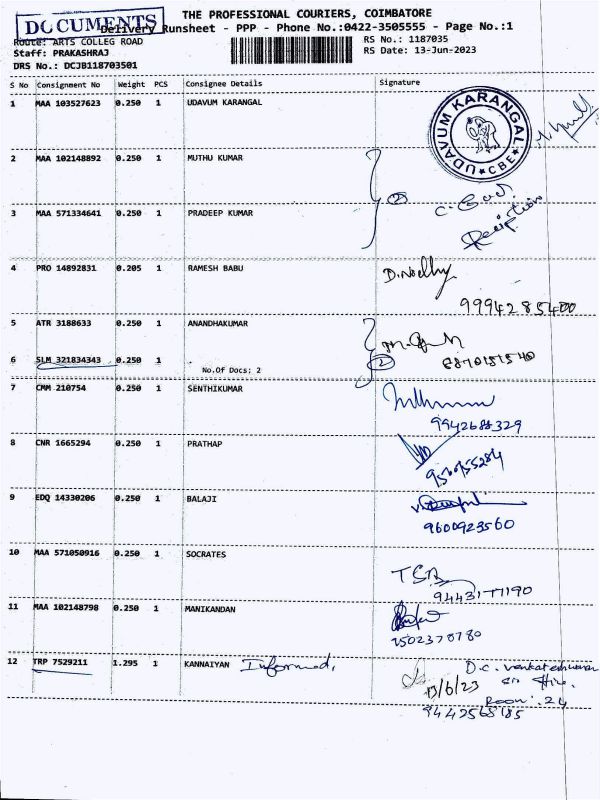 DOCUMENTS
THE PROFESSIONAL COURIERS, COIMBATORE
Delivery Runsheet - PPP - Phone No.:0422-3505555 - Page No.:1
Route: ARTS COLLEG ROAD
RS No.: 1187035
Staff: PRAKASHRAJ
RS Date: 13-Jun-2023
DRS No.: DCJB118703501
S No Consignment No Weight PCS Consignee Details Signature
1 MAA 103527623 0.250 1 UDAVUM KARANGAL
UDAVUM KARANGAL
CBE
2 MAA 102148892 0.250 1 MUTHU KUMAR
2
3 MAA 571334641 0.250 1 PRADEEP KUMAR
4 PRO 14892831 0.205 1 RAMESH BABU
9994285400
5 ATR 3188633 0.250 1 ANANDHAKUMAR
6 SLM 321834343 0.250 1
No.Of Docs: 2
2
7 CMM 210754 0.250 1 SENTHIKUMAR
9942688329
8 CNR 1665294 0.250 1 PRATHAP
9 EDQ 14330206 0.250 1 BALAJI
9600923560
10 MAA 571050916 0.250 1 SOCRATES
9443177190
11 MAA 102148798 0.250 1 MANIKANDAN
12 TRP 7529211 1.295 1 KANNAIYAN Informed,
D.C. Venkateshwaran
13/6/23
Room: 24
9442568185